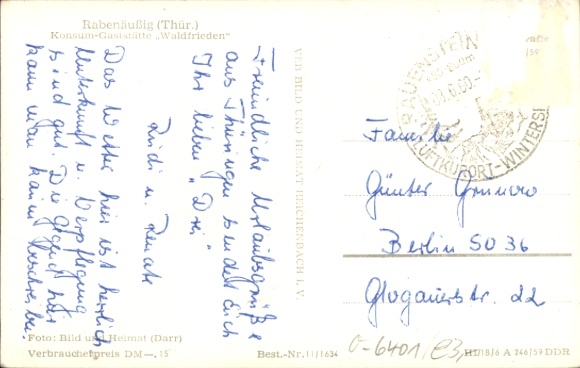 Rabenäußig (Thür.)
Konsum-Gaststätte „Waldfrieden"
Freundliche Urlaubsgrüße
aus Thüringen sendet Euch
Ihr lieben „Drei"
Rudi u. Renate
Das Wetter hier ist herrlich
Unterkunft u. Verpflegung
sind gut. Die Gegend hier
kann man kaum beschreiben.
Foto: Bild und Heimat (Darr)
Verbraucherpreis DM —.15
Best.-Nr. 11/1634
VEB BILD UND HEIMAT REICHENBACH i. V.
RAUENSTEIN
LUFTKURORT-WINTERS
Familie
Günter Grunow
Berlin SO 36
Glogauerstr. 22
0-6401/e3,
III/18/6 A 246/59 DDR